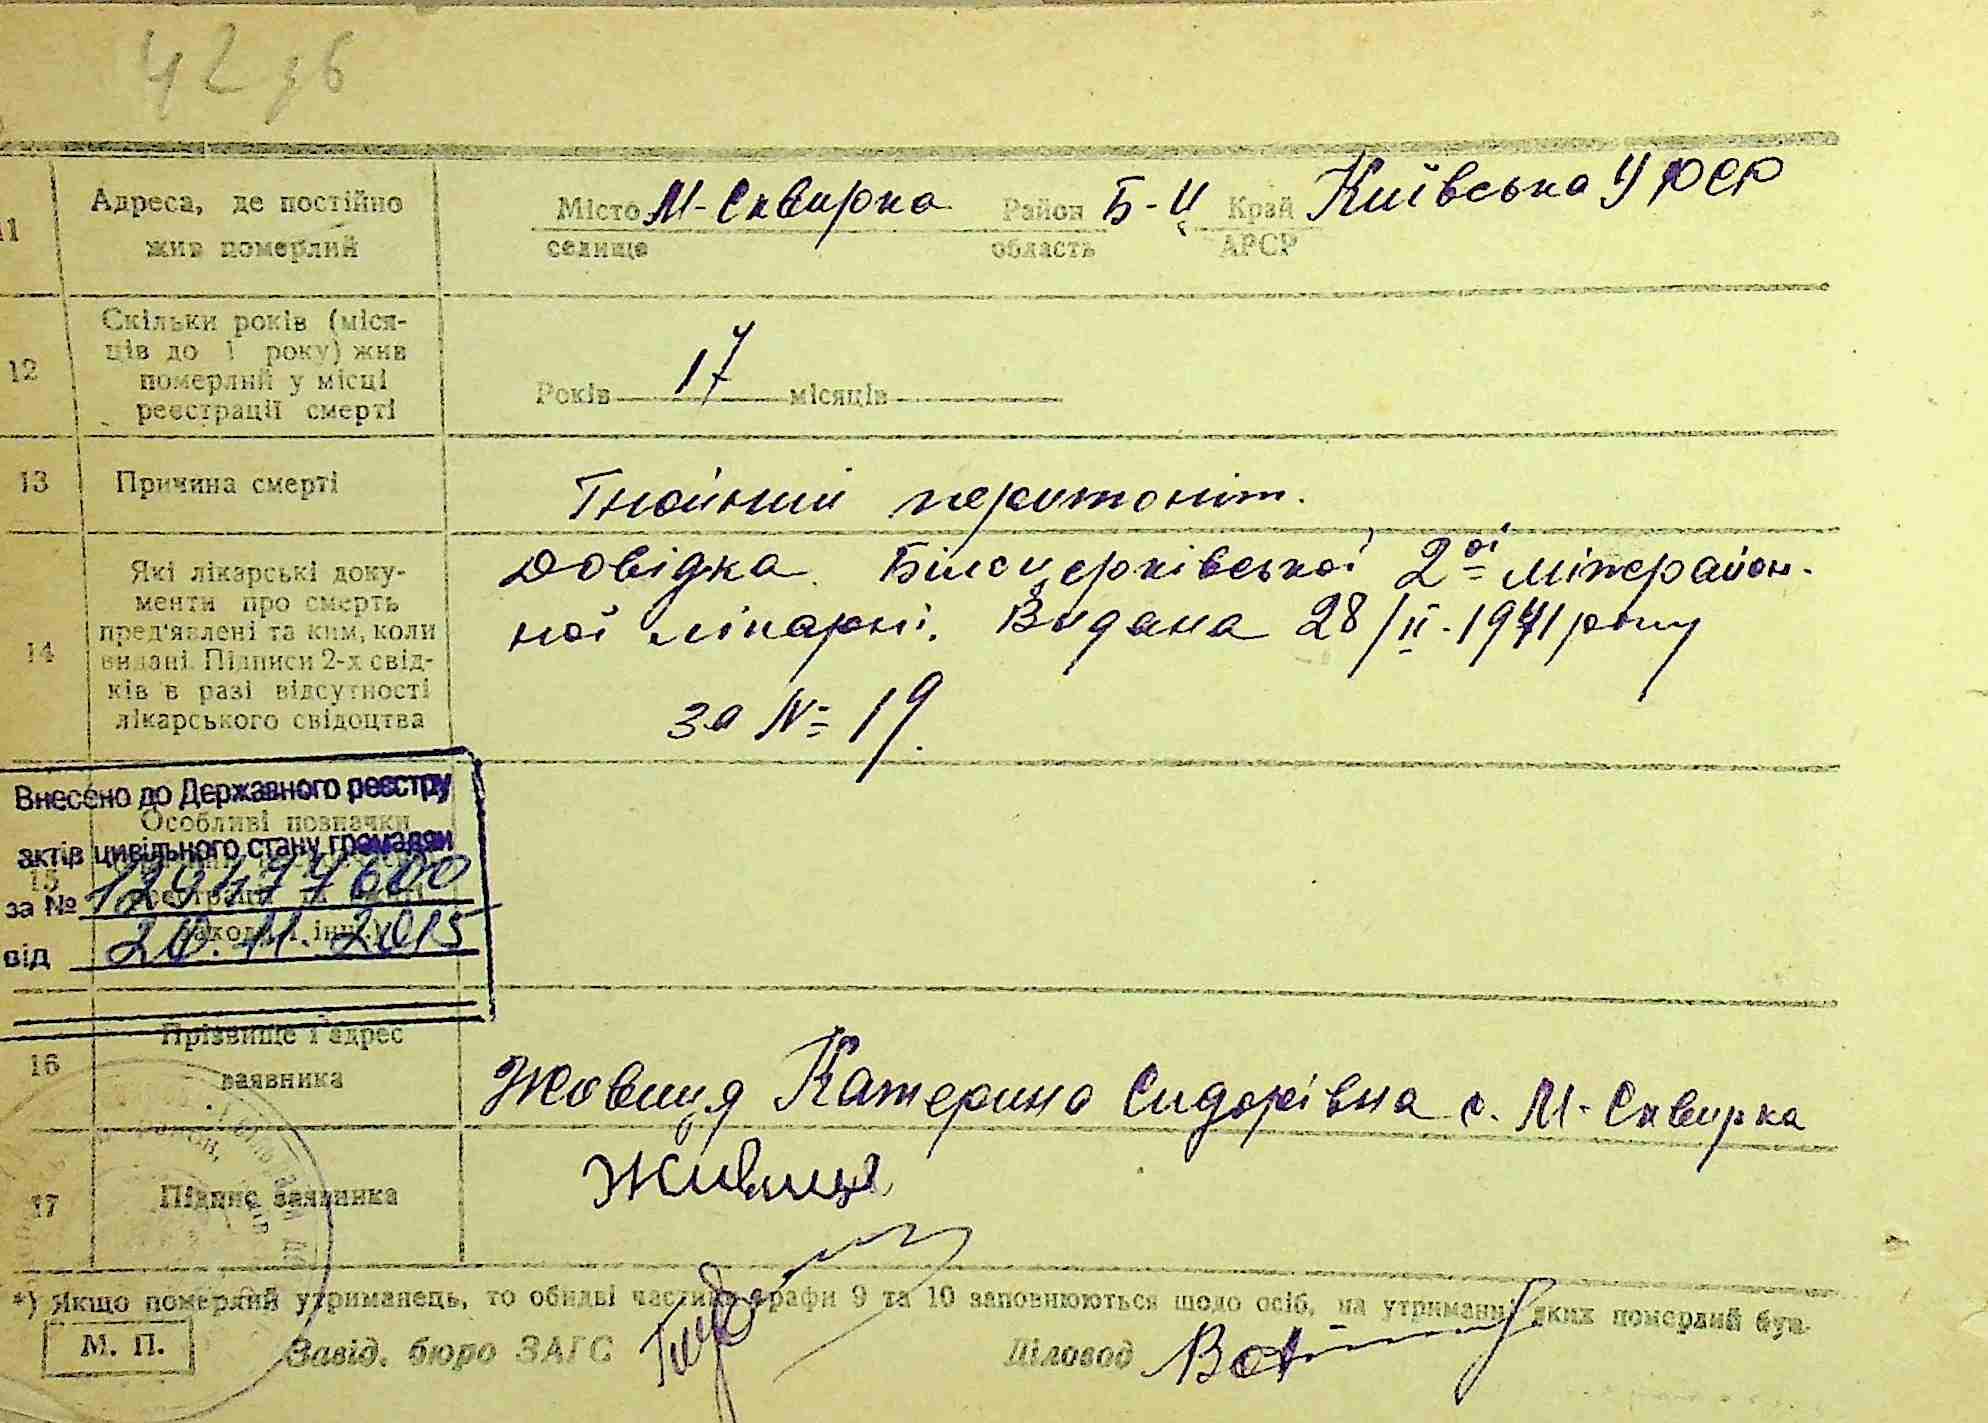 42 зб
11
Адреса, де постійно
жив померлий
Місто М-Сквирка Район Б-Ц Край Київська УРСР
селище область АРСР
12
Скільки років (міся-
ців до 1 року) жив
померлий у місці
реєстрації смерті
Років 17 місяців
13
Причина смерті
Гнойний перитоніт.
14
Які лікарські доку-
менти про смерть
пред'явлені та ким, коли
видані. Підписи 2-х свід-
ків в разі відсутності
лікарського свідоцтва
Довідка Білоцерківської 2ої міжрайон-
ної лікарні. Видана 28/II-1941 року
за № 19.
Внесено до Державного реєстру
актів цивільного стану громадян
за № 129477600
від 20.11.2015
15
Особливі позначки
16
Прізвище і адрес
заявника
Жовниця Катерина Сидорівна с. М-Сквирка
17
Підпис заявника
*) Якщо померлий утриманець, то обидві частини графи 9 та 10 заповнюються щодо осіб, на утриманні яких померлий був.
М. П.
Завід. бюро ЗАГС
Діловод